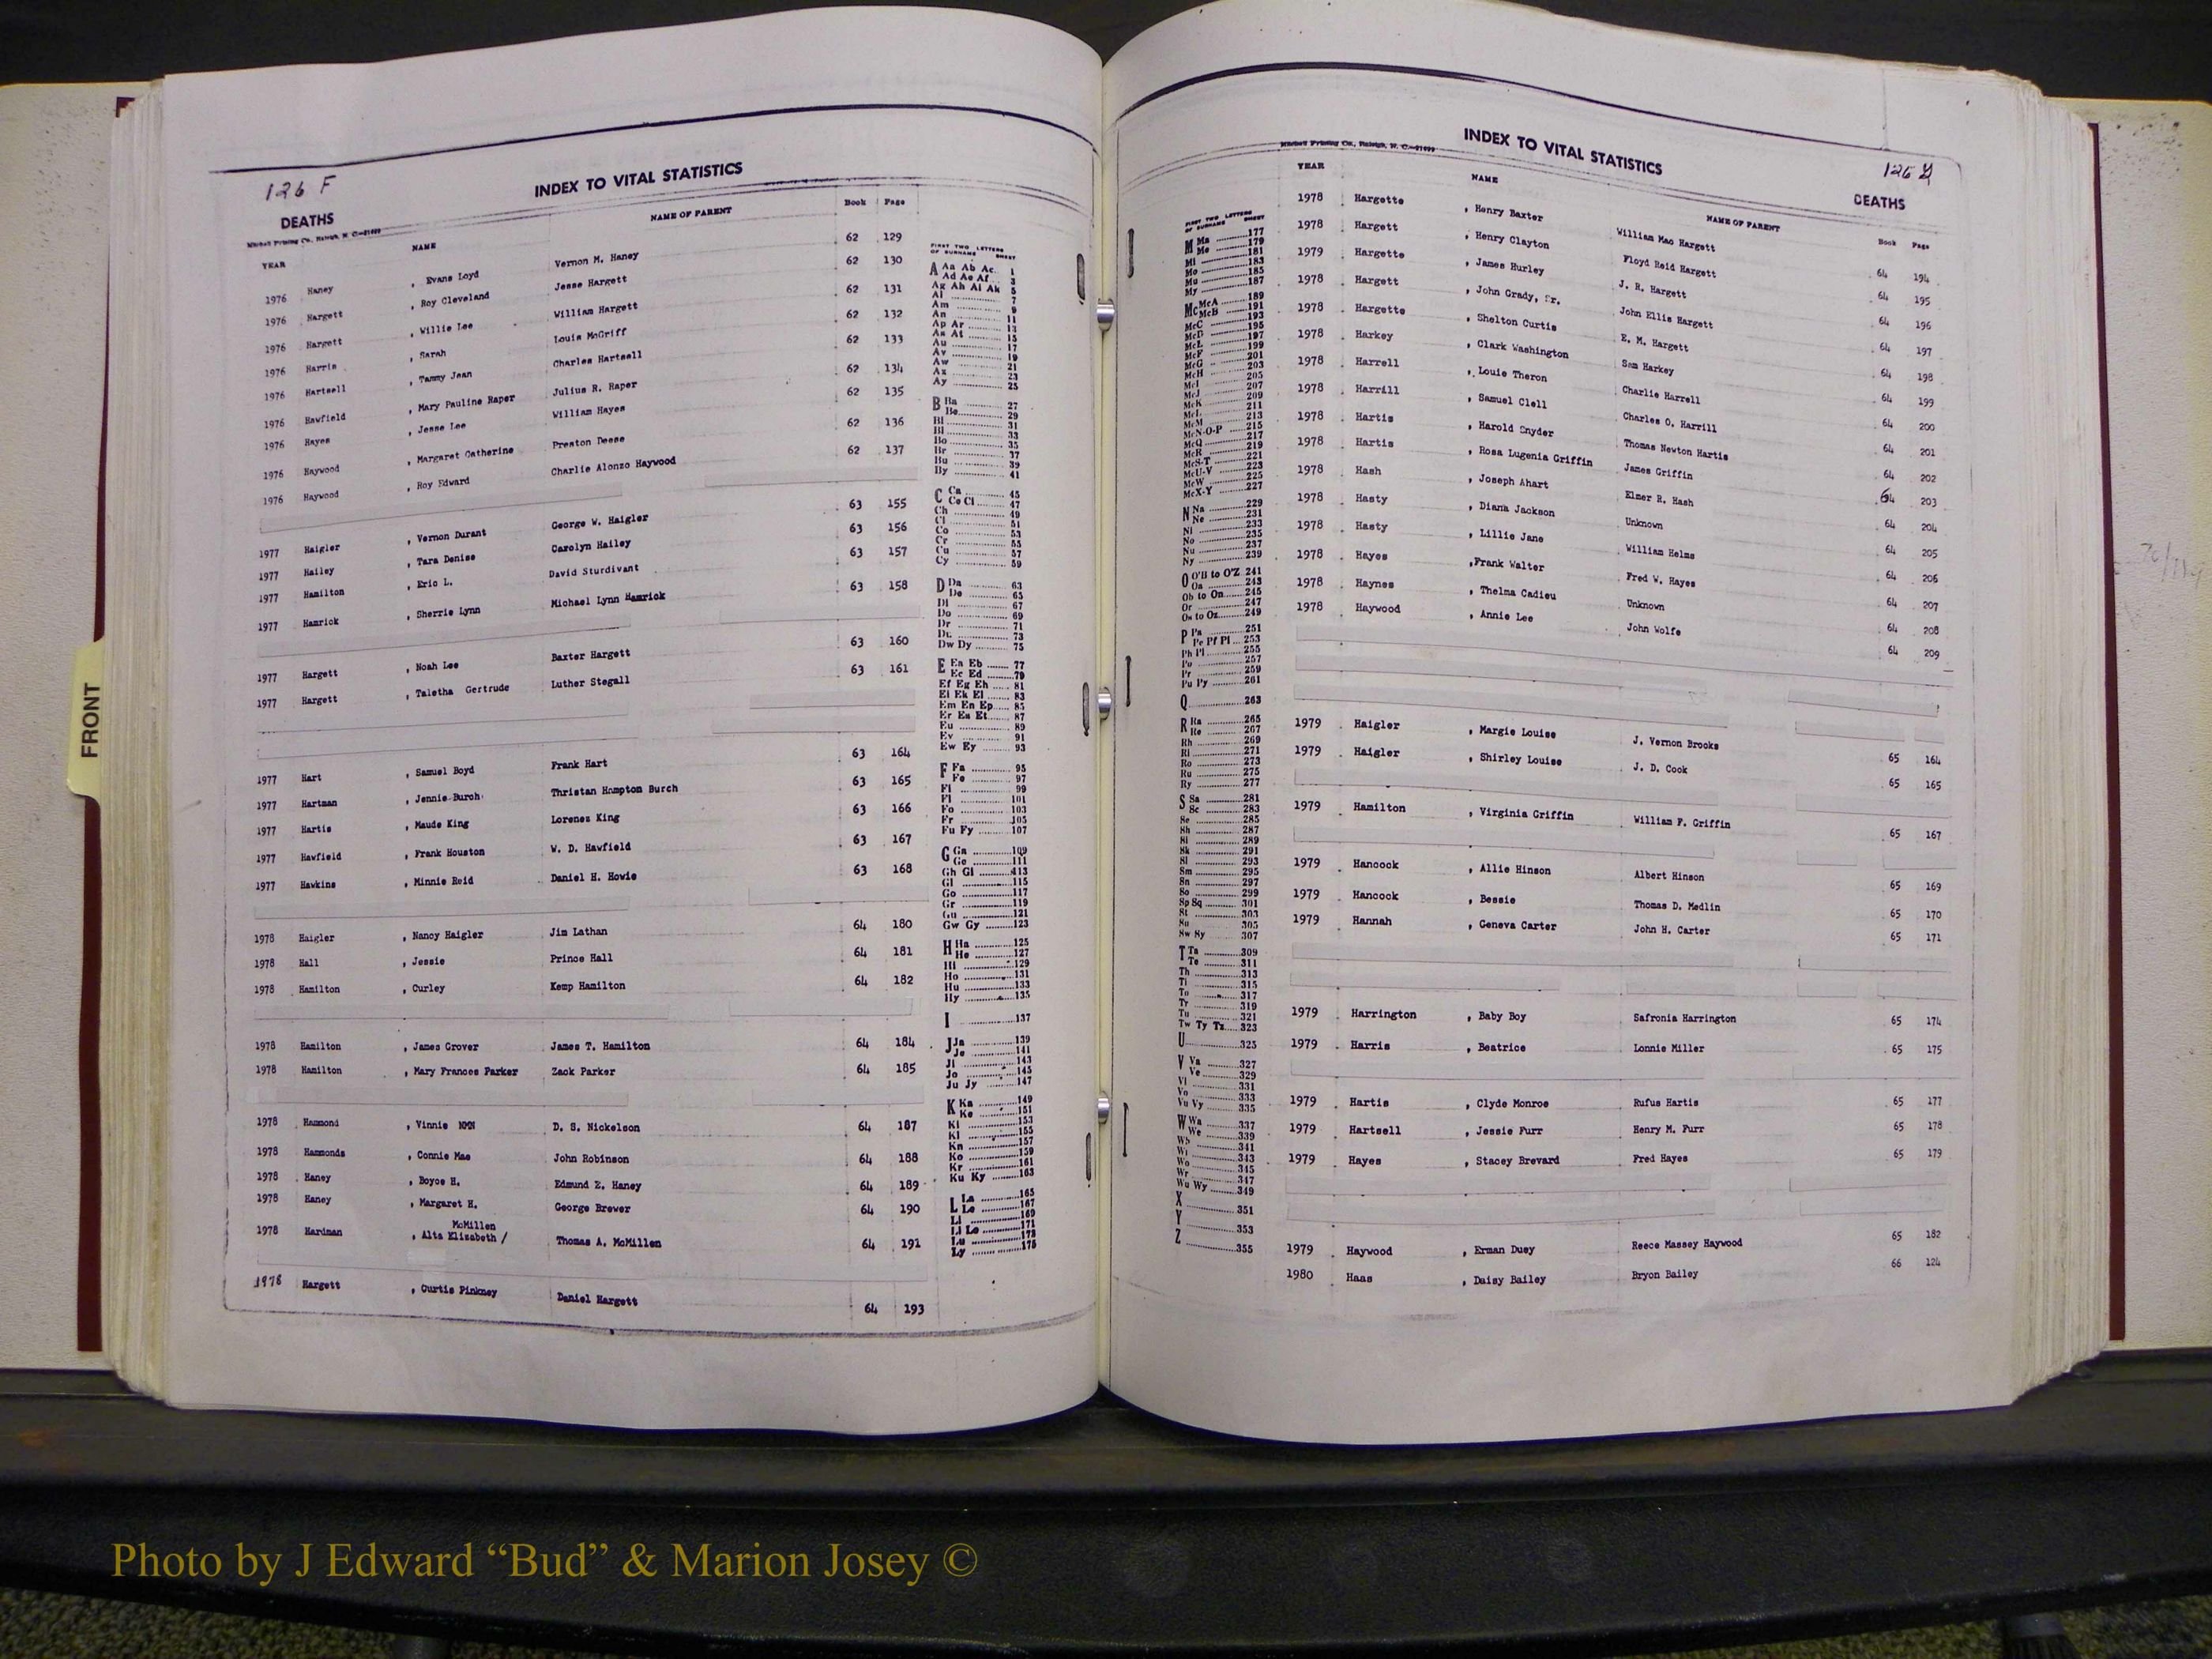 126 F
INDEX TO VITAL STATISTICS
DEATHS
Mitchell Printing Co., Raleigh, N. C.
YEAR NAME NAME OF PARENT Book Page
1976 Haney , Evans Loyd Vernon M. Haney 62 129
1976 Hargett , Roy Cleveland Jesse Hargett 62 130
1976 Hargett , Willie Lee William Hargett 62 131
1976 Harris , Sarah Louis McGriff 62 132
1976 Hartsell , Tammy Jean Charles Hartsell 62 133
1976 Hawfield , Mary Pauline Raper Julius R. Raper 62 134
1976 Hayes , Jesse Lee William Hayes 62 135
1976 Haywood , Margaret Catherine Preston Deese 62 136
1976 Haywood , Roy Edward Charlie Alonzo Haywood 62 137
1977 Haigler , Vernon Durant George W. Haigler 63 155
1977 Hailey , Tara Denise Carolyn Hailey 63 156
1977 Hamilton , Eric L. David Sturdivant 63 157
1977 Hamrick , Sherrie Lynn Michael Lynn Hamrick 63 158
1977 Hargett , Noah Lee Baxter Hargett 63 160
1977 Hargett , Taletha Gertrude Luther Stegall 63 161
1977 Hart , Samuel Boyd Frank Hart 63 164
1977 Hartman , Jennie Burch Thristan Hampton Burch 63 165
1977 Hartis , Maude King Lorenez King 63 166
1977 Hawfield , Frank Houston W. D. Hawfield 63 167
1977 Hawkins , Minnie Reid Daniel H. Howie 63 168
1978 Haigler , Nancy Haigler Jim Lathan 64 180
1978 Hall , Jessie Prince Hall 64 181
1978 Hamilton , Curley Kemp Hamilton 64 182
1978 Hamilton , James Grover James T. Hamilton 64 184
1978 Hamilton , Mary Frances Parker Zack Parker 64 185
1978 Hammond , Vinnie NMN D. S. Nickelson 64 187
1978 Hammonds , Connie Mae John Robinson 64 188
1978 Haney , Boyce H. Edmund E. Haney 64 189
1978 Haney , Margaret H. George Brewer 64 190
McMillen
1978 Hardman , Alta Elizabeth / Thomas A. McMillen 64 191
1978 Hargett , Curtis Pinkney Daniel Hargett 64 193
FIRST TWO LETTERS
OF SURNAME SHEET
A Aa Ab Ac 1
Ad Ae Af 3
Ag Ah Ai Ak 5
Al 7
Am 9
An 11
Ap Ar 13
As At 15
Au 17
Av 19
Aw 21
Ax 23
Ay 25
B Ba 27
Be 29
Bi 31
Bl 33
Bo 35
Br 37
Bu 39
By 41
C Ca 45
Ce Ci 47
Ch 49
Cl 51
Co 53
Cr 55
Cu 57
Cy 59
D Da 63
De 65
Di 67
Do 69
Dr 71
Du 73
Dw Dy 75
E Ea Eb 77
Ec Ed 79
Ef Eg Eh 81
Ei Ek El 83
Em En Ep 85
Er Es Et 87
Eu 89
Ev 91
Ew Ey 93
F Fa 95
Fe 97
Fi 99
Fl 101
Fo 103
Fr 105
Fu Fy 107
G Ga 109
Ge 111
Gh Gi 113
Gl 115
Go 117
Gr 119
Gu 121
Gw Gy 123
H Ha 125
He 127
Hi 129
Ho 131
Hu 133
Hy 135
I 137
J Ja 139
Je 141
Ji 143
Jo 145
Ju Jy 147
K Ka 149
Ke 151
Ki 153
Kl 155
Kn 157
Ko 159
Kr 161
Ku Ky 163
L La 165
Le 167
Li 169
Ll Lo 171
Lu 173
Ly 175
INDEX TO VITAL STATISTICS
126 G
DEATHS
Mitchell Printing Co., Raleigh, N. C.
YEAR NAME NAME OF PARENT Book Page
1978 Hargette , Henry Baxter William Mac Hargett 64 194
1978 Hargett , Henry Clayton Floyd Reid Hargett 64 195
1979 Hargette , James Hurley J. R. Hargett 64 196
1978 Hargett , John Grady, Sr. John Ellis Hargett 64 197
1978 Hargette , Shelton Curtis E. M. Hargett 64 198
1978 Harkey , Clark Washington Sam Harkey 64 199
1978 Harrell , Louie Theron Charlie Harrell 64 200
1978 Harrill , Samuel Clell Charles O. Harrill 64 201
1978 Hartis , Harold Snyder Thomas Newton Hartis 64 202
1978 Hartis , Rosa Lugenia Griffin James Griffin 64 203
1978 Hash , Joseph Ahart Elmer R. Hash 64 204
1978 Hasty , Diana Jackson Unknown 64 205
1978 Hasty , Lillie Jane William Helms 64 206
1978 Hayes ,Frank Walter Fred W. Hayes 64 207
1978 Haynes , Thelma Cadieu Unknown 64 208
1978 Haywood , Annie Lee John Wolfe 64 209
1979 Haigler , Margie Louise J. Vernon Brooks 65 164
1979 Haigler , Shirley Louise J. D. Cook 65 165
1979 Hamilton , Virginia Griffin William F. Griffin 65 167
1979 Hancock , Allie Hinson Albert Hinson 65 169
1979 Hancock , Bessie Thomas D. Medlin 65 170
1979 Hannah , Geneva Carter John H. Carter 65 171
1979 Harrington , Baby Boy Safronia Harrington 65 174
1979 Harris , Beatrice Lonnie Miller 65 175
1979 Hartis , Clyde Monroe Rufus Hartis 65 177
1979 Hartsell , Jessie Furr Henry M. Furr 65 178
1979 Hayes , Stacey Brevard Fred Hayes 65 179
1979 Haywood , Erman Duey Reece Massey Haywood 65 182
1980 Haas , Daisy Bailey Bryon Bailey 66 124
FIRST TWO LETTERS
OF SURNAME SHEET
M Ma 177
Me 179
Mi 181
Mo 183
Mu 185
My 187
Mc McA 189
McB 191
McC 193
McD 195
McE 197
McF 199
McG 201
McH 203
McI 205
McJ 207
McK 209
McL 211
McM 213
McN-O-P 215
McQ 217
McR 219
McS-T 221
McU-V 223
McW 225
McX-Y 227
N Na 229
Ne 231
Ni 233
No 235
Nu 237
Ny 239
O O'B to O'Z 241
Oa 243
Ob to On 245
Or 247
Os to Oz 249
P Pa 251
Pe Pf Pl 253
Ph Pi 255
Po 257
Pr 259
Pu Py 261
Q 263
R Ra 265
Re 267
Rh 269
Ri 271
Ro 273
Ru 275
Ry 277
S Sa 281
Sc 283
Se 285
Sh 287
Si 289
Sk 291
Sl 293
Sm 295
Sn 297
So 299
Sp Sq 301
St 303
Su 305
Sw Sy 307
T Ta 309
Te 311
Th 313
Ti 315
To 317
Tr 319
Tu 321
Tw Ty Tz 323
U 325
V Va 327
Ve 329
Vi 331
Vo 333
Vu Vy 335
W Wa 337
We 339
Wh 341
Wi 343
Wo 345
Wr 347
Wu Wy 349
X 351
Y 353
Z 355
FRONT
Photo by J Edward “Bud” & Marion Josey ©